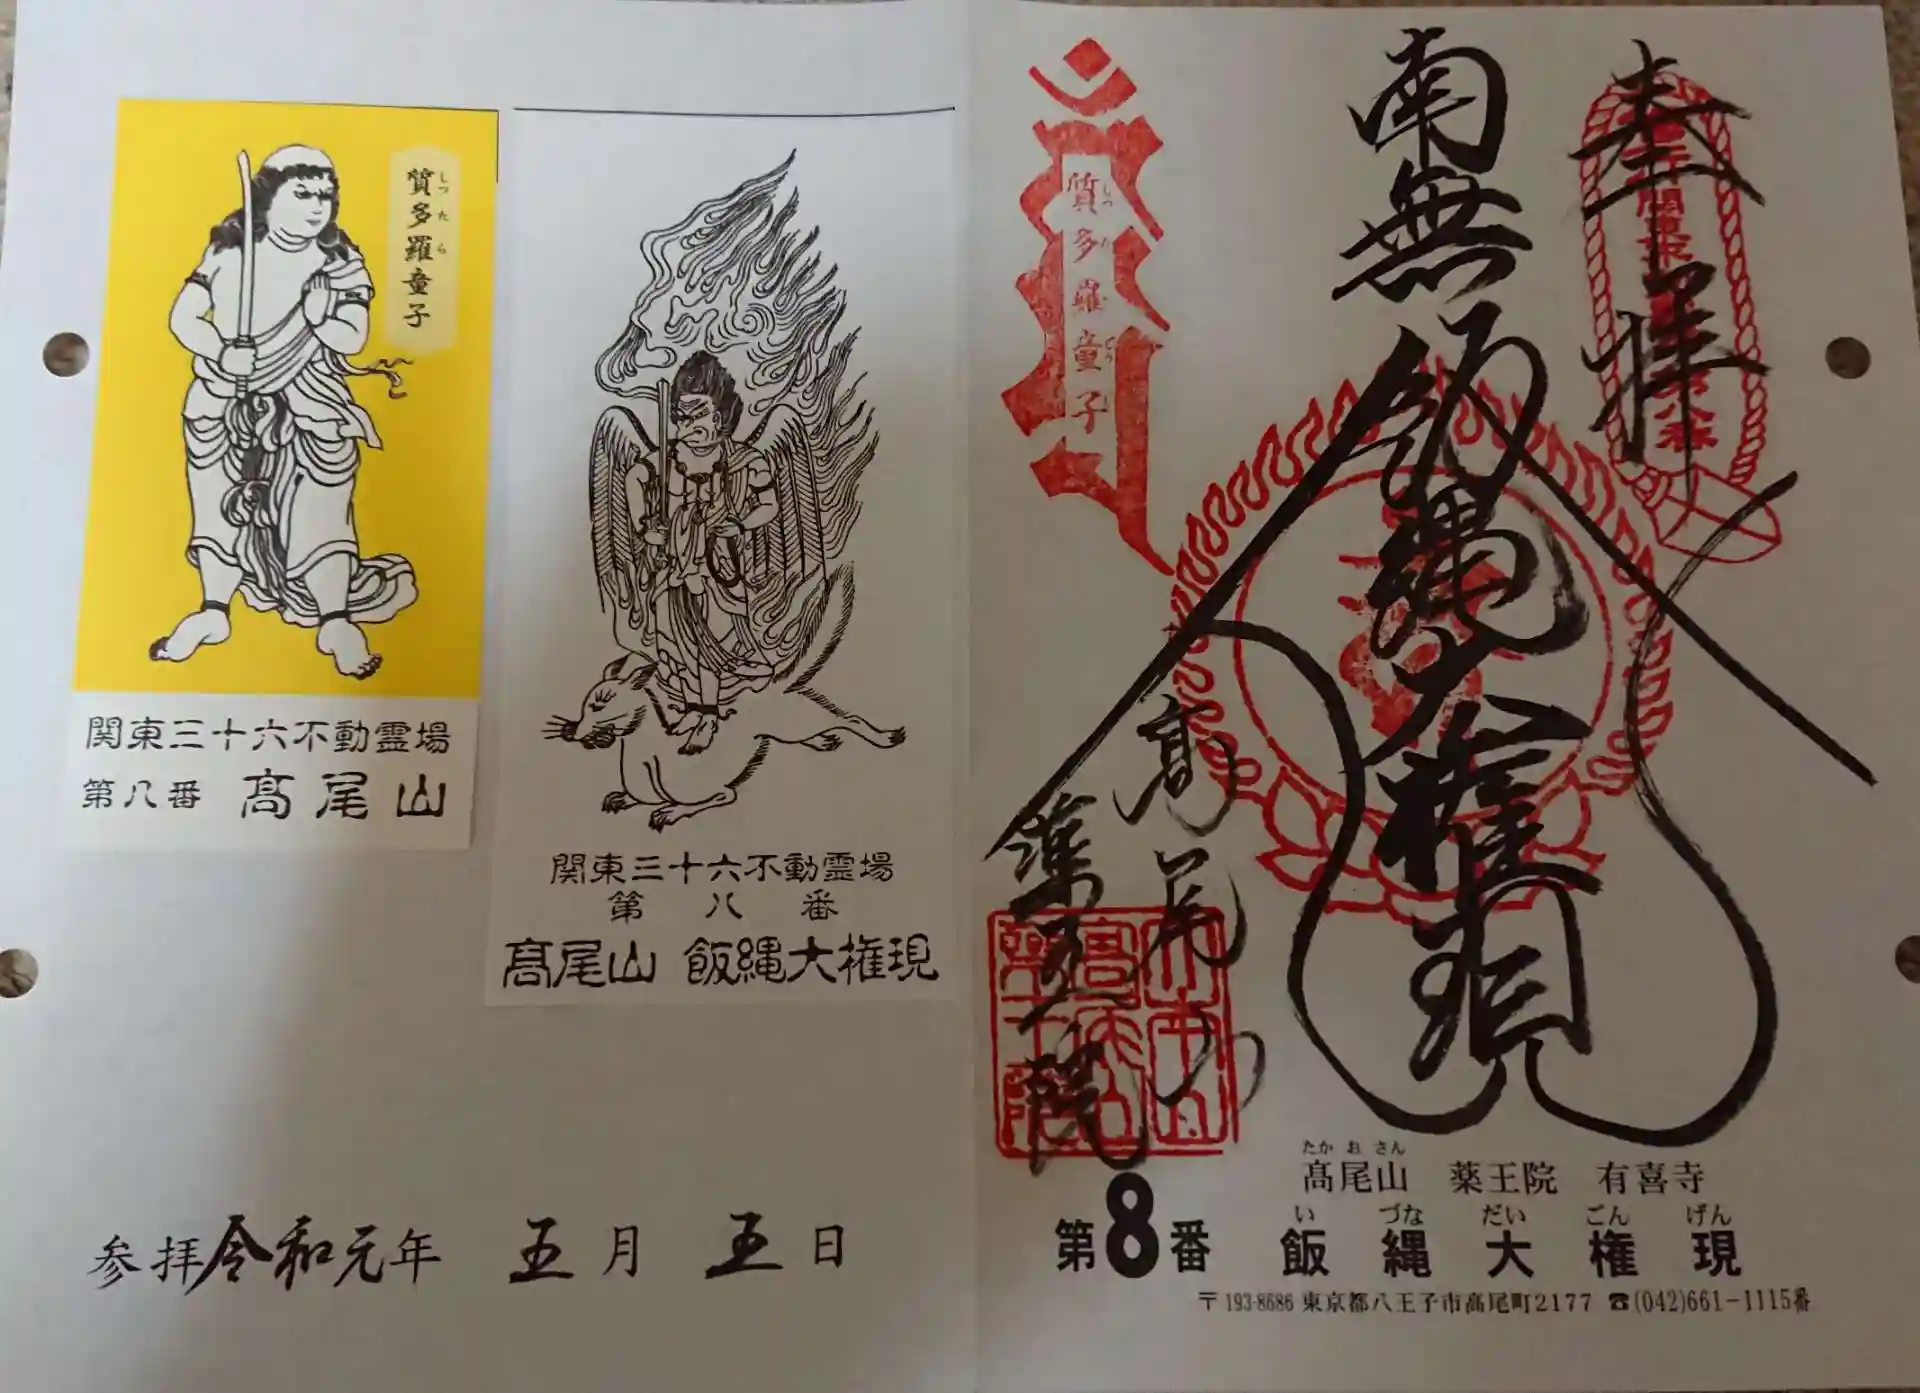 奉拝
南無飯縄大権現
高尾山
薬王院
質多羅童子
しつたら
どうじ
質多羅童子
しつたら
関東三十六不動霊場
第八番 髙尾山
関東三十六不動霊場
第八番
髙尾山 飯縄大権現
参拝令和元年 五月 五日
たかおさん
髙尾山 薬王院 有喜寺
いづなだいごんげん
第8番 飯縄大権現
〒193-8686 東京都八王子市高尾町2177 ☎(042)661-1115番